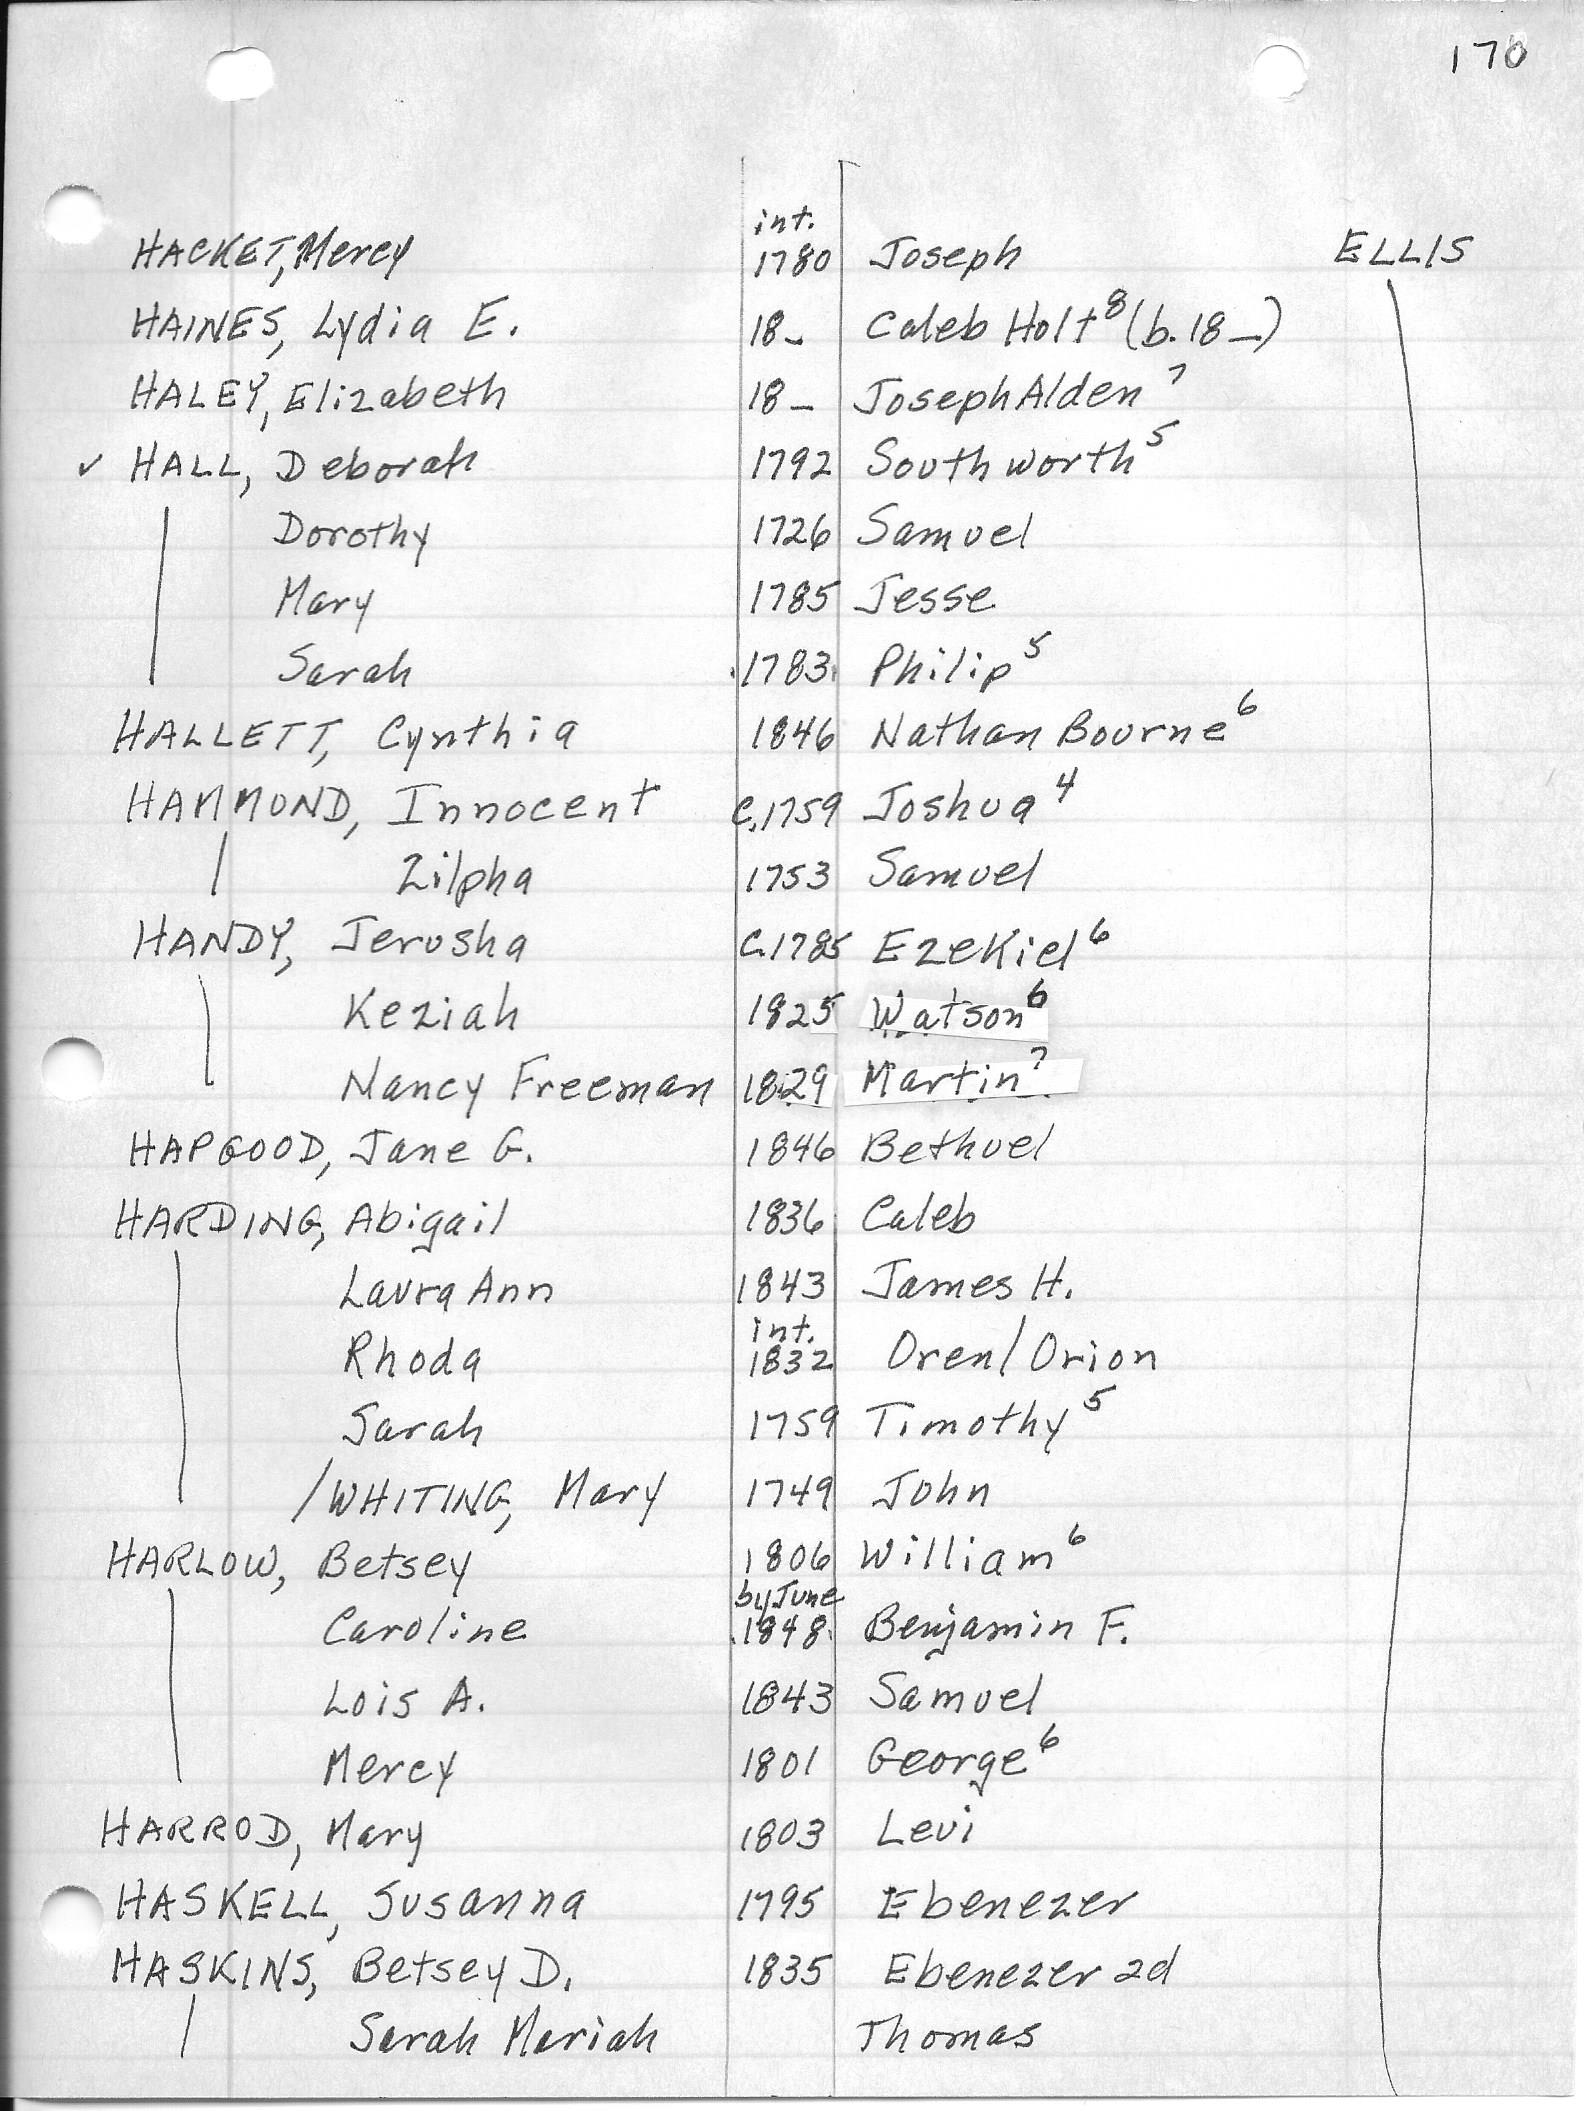 170
int.
HACKET, Mercy 1780 Joseph ELLIS
HAINES, Lydia E. 18_ Caleb Holt⁸ (b. 18_)
HALEY, Elizabeth 18_ Joseph Alden⁷
✓ HALL, Deborah 1792 Southworth⁵
Dorothy 1726 Samuel
Mary 1785 Jesse
Sarah 1783 Philip⁵
HALLETT, Cynthia 1846 Nathan Bourne⁶
HAMMOND, Innocent c.1759 Joshua⁴
Zilpha 1753 Samuel
HANDY, Jerusha c.1785 Ezekiel⁶
Keziah 1825 Watson⁶
Nancy Freeman 1829 Martin⁷
HAPGOOD, Jane G. 1846 Bethuel
HARDING, Abigail 1836 Caleb
Laura Ann 1843 James H.
int.
Rhoda 1832 Oren/Orion
Sarah 1759 Timothy⁵
/WHITING, Mary 1749 John
HARLOW, Betsey 1806 William⁶
by June
Caroline 1848 Benjamin F.
Lois A. 1843 Samuel
Mercy 1801 George⁶
HARROD, Mary 1803 Levi
HASKELL, Susanna 1795 Ebenezer
HASKINS, Betsey D. 1835 Ebenezer 2d
Sarah Mariah Thomas